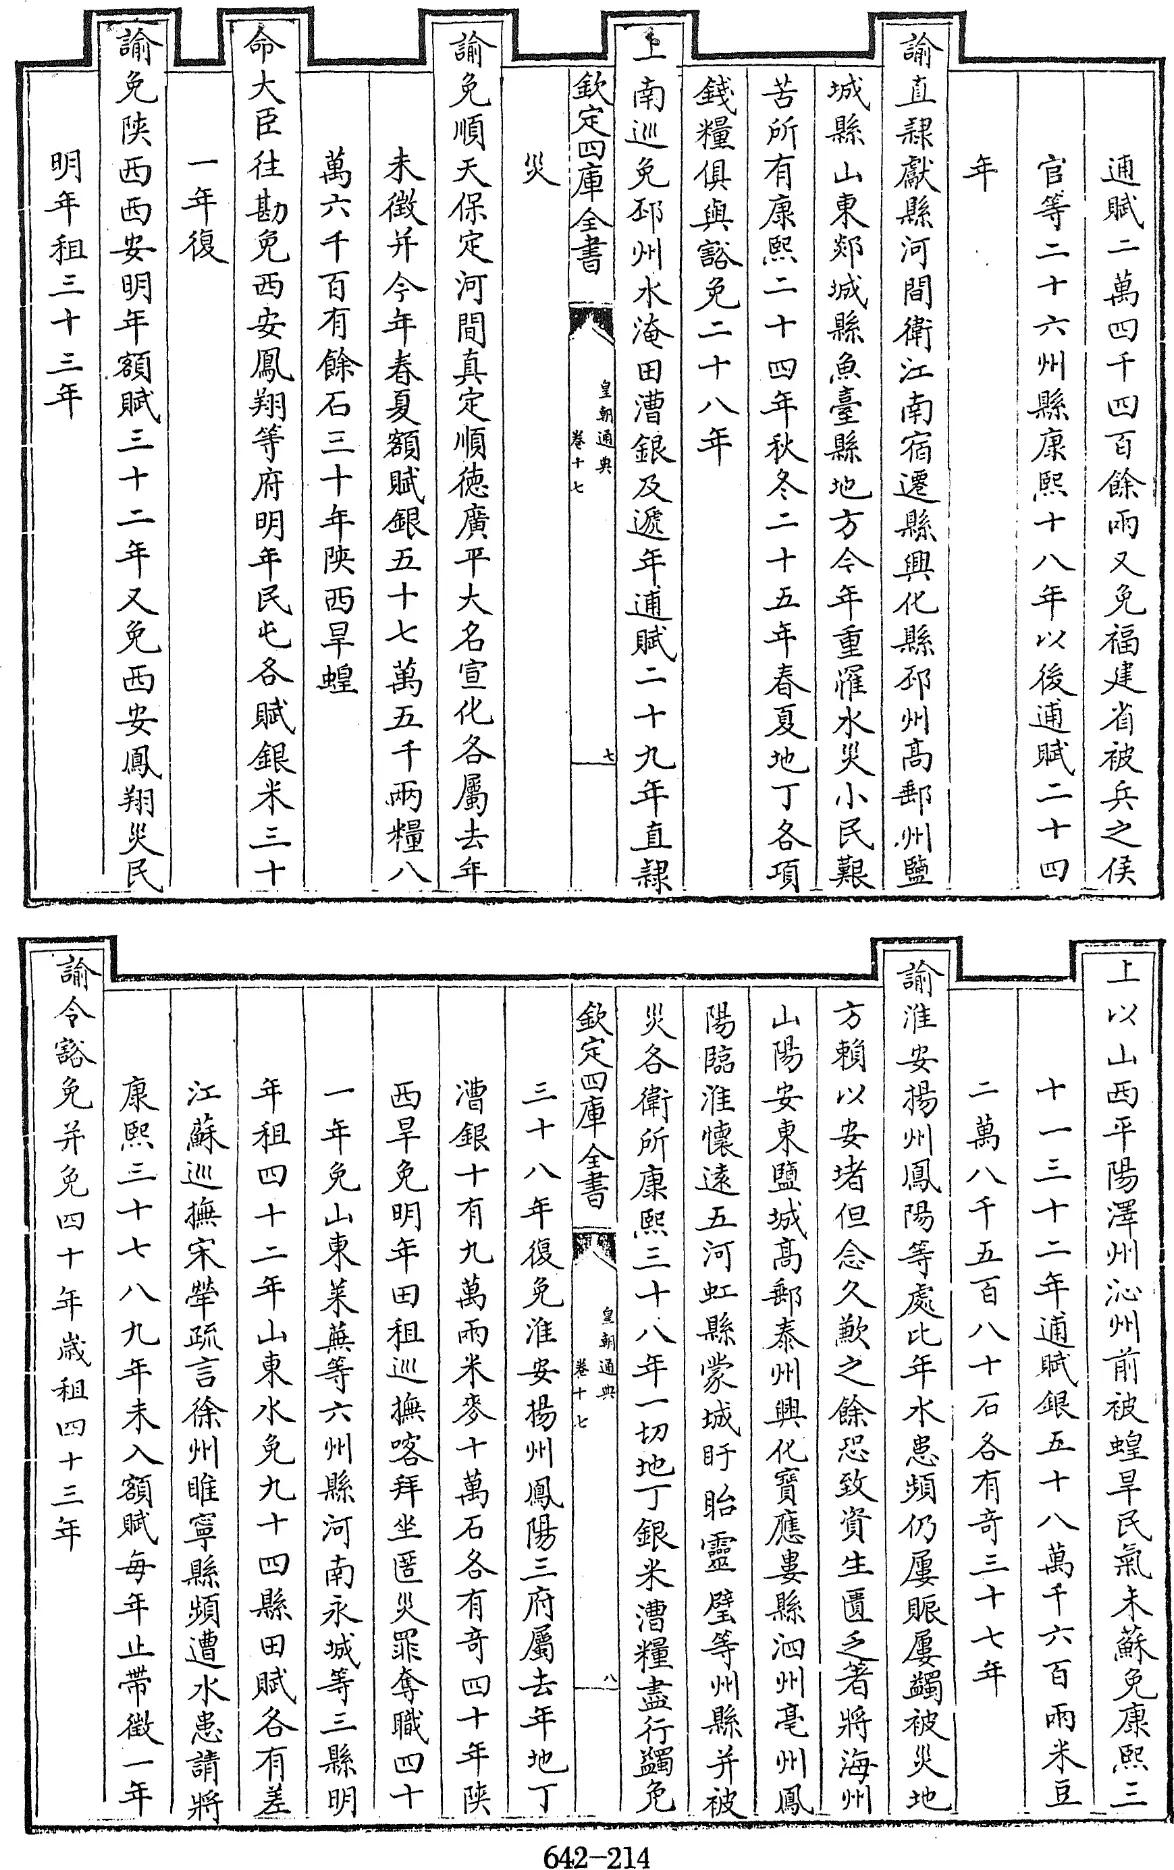 逋賦二萬四千四百餘兩又免福建省被兵之侯
官等二十六州縣康熙十八年以後逋賦二十四
年
諭直隸獻縣河間衛江南宿遷縣興化縣邳州髙郵州鹽
城縣山東郯城縣魚臺縣地方今年重罹水災小民艱
苦所有康熙二十四年秋冬二十五年春夏地丁各項
錢糧俱與豁免二十八年
上南巡免邳州水淹田漕銀及遞年逋賦二十九年直隸
欽定四庫全書
皇朝通典
卷十七
七
災
諭免順天保定河間真定順徳廣平大名宣化各屬去年
未徵并今年春夏額賦銀五十七萬五千兩糧八
萬六千百有餘石三十年陜西旱蝗
命大臣往勘免西安鳳翔等府明年民屯各賦銀米三十
一年復
諭免陜西西安明年額賦三十二年又免西安鳳翔災民
明年租三十三年
上以山西平陽澤州沁州前被蝗旱民氣未蘇免康熙三
十一三十二年逋賦銀五十八萬千六百兩米豆
二萬八千五百八十石各有竒三十七年
諭淮安揚州鳳陽等處比年水患頻仍屢賑屢蠲被災地
方賴以安堵但念久歉之餘恐致資生匱乏著將海州
山陽安東鹽城髙郵泰州興化寶應婁縣泗州亳州鳳
陽臨淮懷逺五河虹縣蒙城盱眙靈璧等州縣并被
災各衛所康熙三十八年一切地丁銀米漕糧盡行蠲免
欽定四庫全書
皇朝通典
卷十七
八
三十八年復免淮安揚州鳳陽三府屬去年地丁
漕銀十有九萬兩米麥十萬石各有竒四十年陜
西旱免明年田租巡撫喀拜坐匿災罪奪職四十
一年免山東萊蕪等六州縣河南永城等三縣明
年租四十二年山東水免九十四縣田賦各有差
江蘇巡撫宋犖疏言徐州睢寧縣頻遭水患請將
康熙三十七八九年未入額賦每年止帶徵一年
諭令豁免并免四十年歲租四十三年
642-214